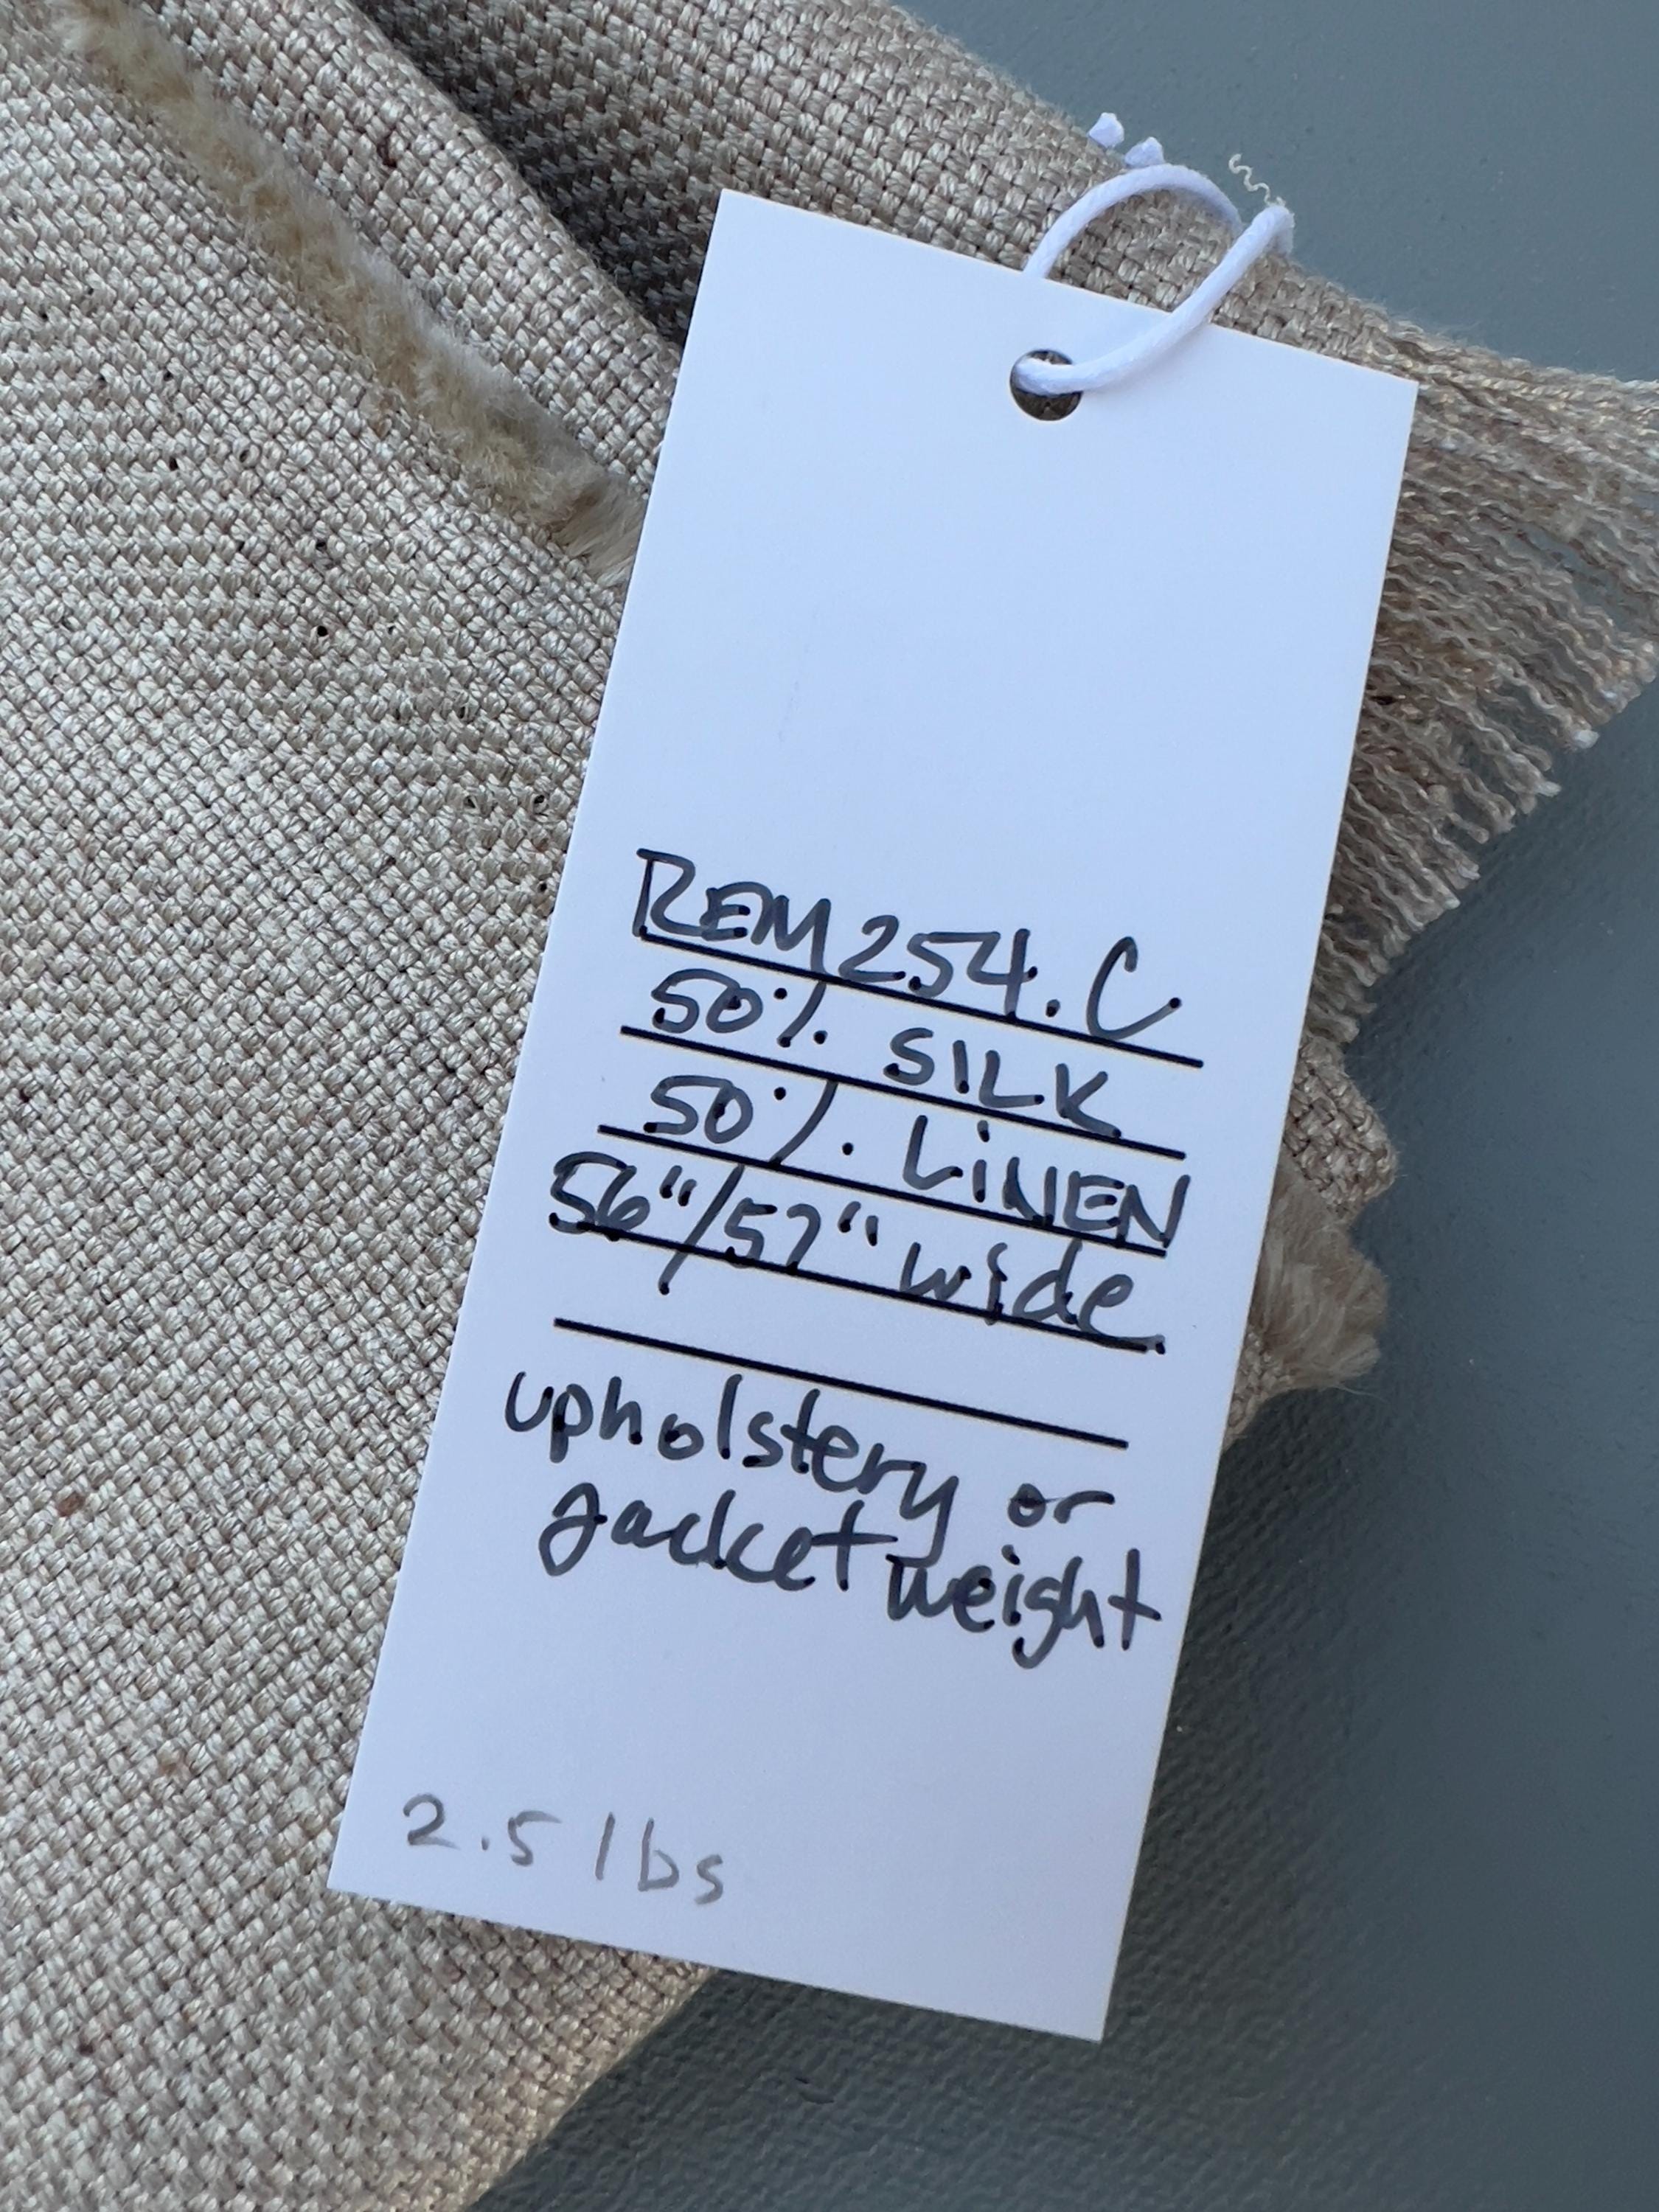 REM254.C
50% SILK
50% LiNEN
56"/57" wide
upholstery or
jacket weight
2.5 lbs